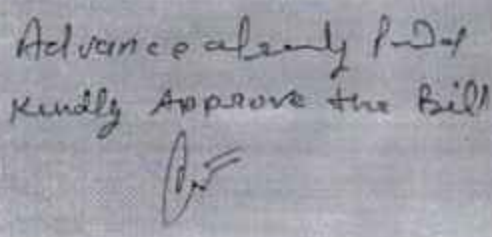 Advance already
Kindly Approve the Bill